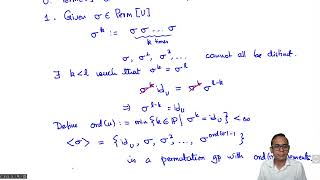 0. Perm[U]
1. Given σ ∈ Perm[U]
σ^k := σ σ ... σ
k times
σ, σ², σ³, ... cannot all be distinct.
∃ k < l such that σ^k = σ^l
σ^k · id_U = σ^k σ^{l-k}
⇒ σ^{l-k} = id_U
Define ord(σ) := min{k ∈ ℙ | σ^k = id_U} < ∞
⟨σ⟩ = {id_U, σ, σ², ..., σ^{ord(σ)-1}}
is a permutation gp with ord(σ) elements.